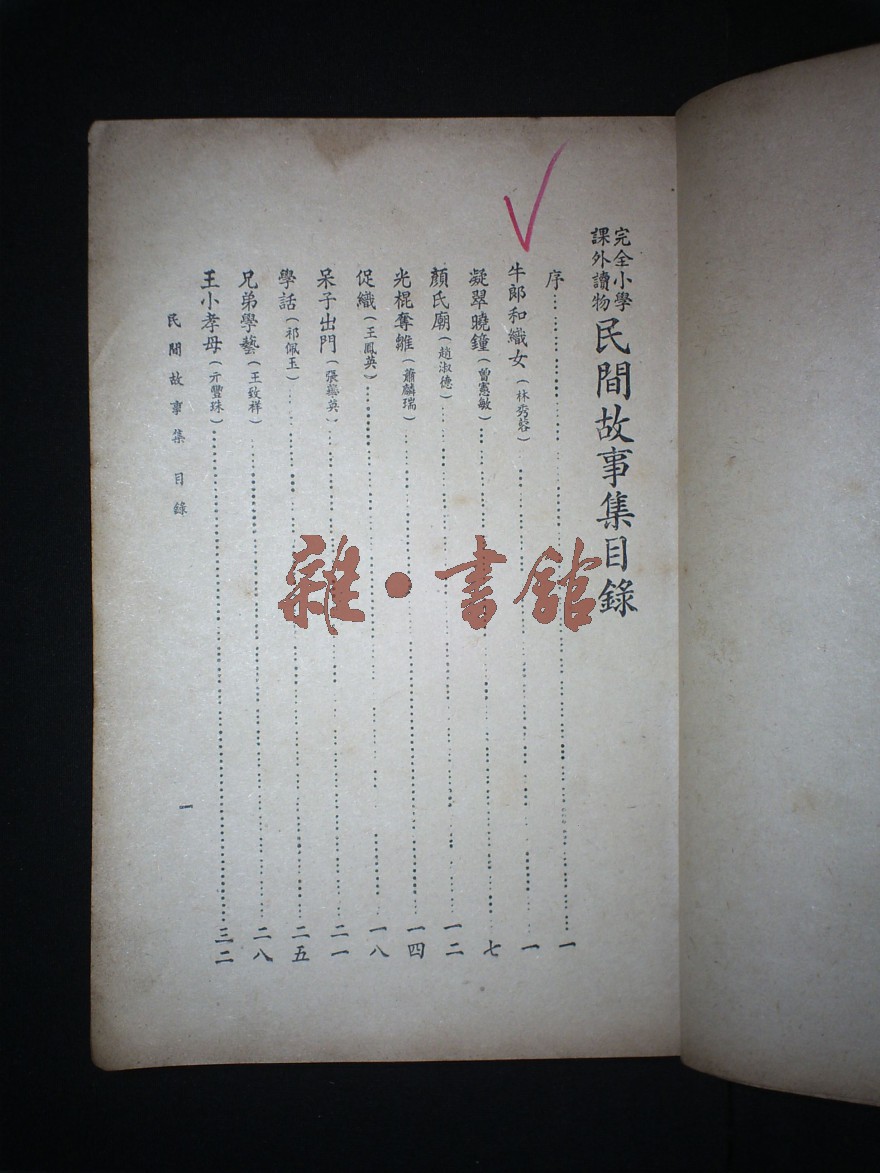 完全小學
課外讀物
民間故事集目錄
序……一
牛郎和織女（林秀蓉）……一
凝翠曉鐘（曾憲敏）……七
顏氏廟（趙淑德）……一二
光棍奪雛（蕭麟瑞）……一四
促織（王鳳英）……一八
呆子出門（張藝英）……二一
學話（祁佩玉）……二五
兄弟學藝（王致祥）……二八
王小孝母（亓豐珠）……三二
民間故事集 目錄
一
雜·書館